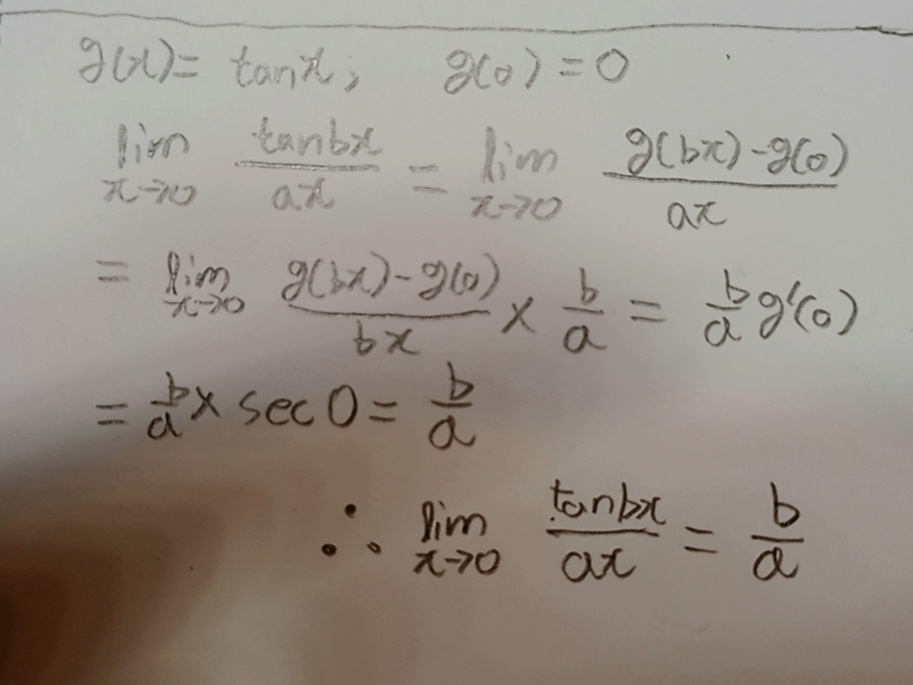 g(x) = tanx; g(0) = 0
lim x→0 tanbx/ax = lim x→0 g(bx)-g(0)/ax
= lim x→0 g(bx)-g(0)/bx × b/a = b/a g'(0)
= b/a × sec0 = b/a
∴ lim x→0 tanbx/ax = b/a